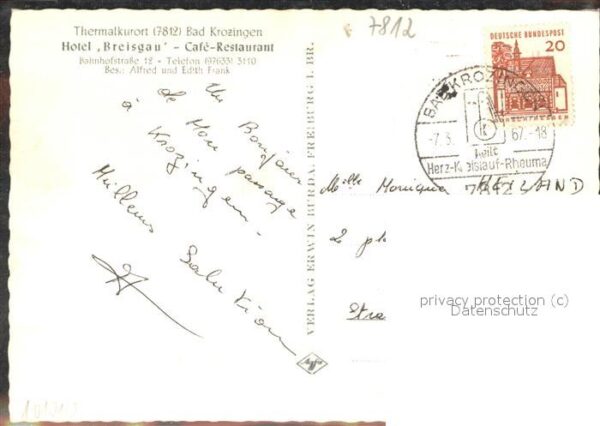 7812
Thermalkurort (7812) Bad Krozingen
Hotel „Breisgau" - Café-Restaurant
Bahnhofstraße 18 - Telefon (07633) 3110
Bes.: Alfred und Edith Frank
Un Bonjour
de Mon passage
à Krozingen -
Meilleures Salutations
VERLAG ERWIN BURDA, FREIBURG I. BR.
DEUTSCHE BUNDESPOST
20
BAD KROZINGEN
-7.3. 67.-18
heilt
Herz-Kreislauf-Rheuma
7812
Mlle Monique
2 pl
Stra
privacy protection (c)
Datenschutz